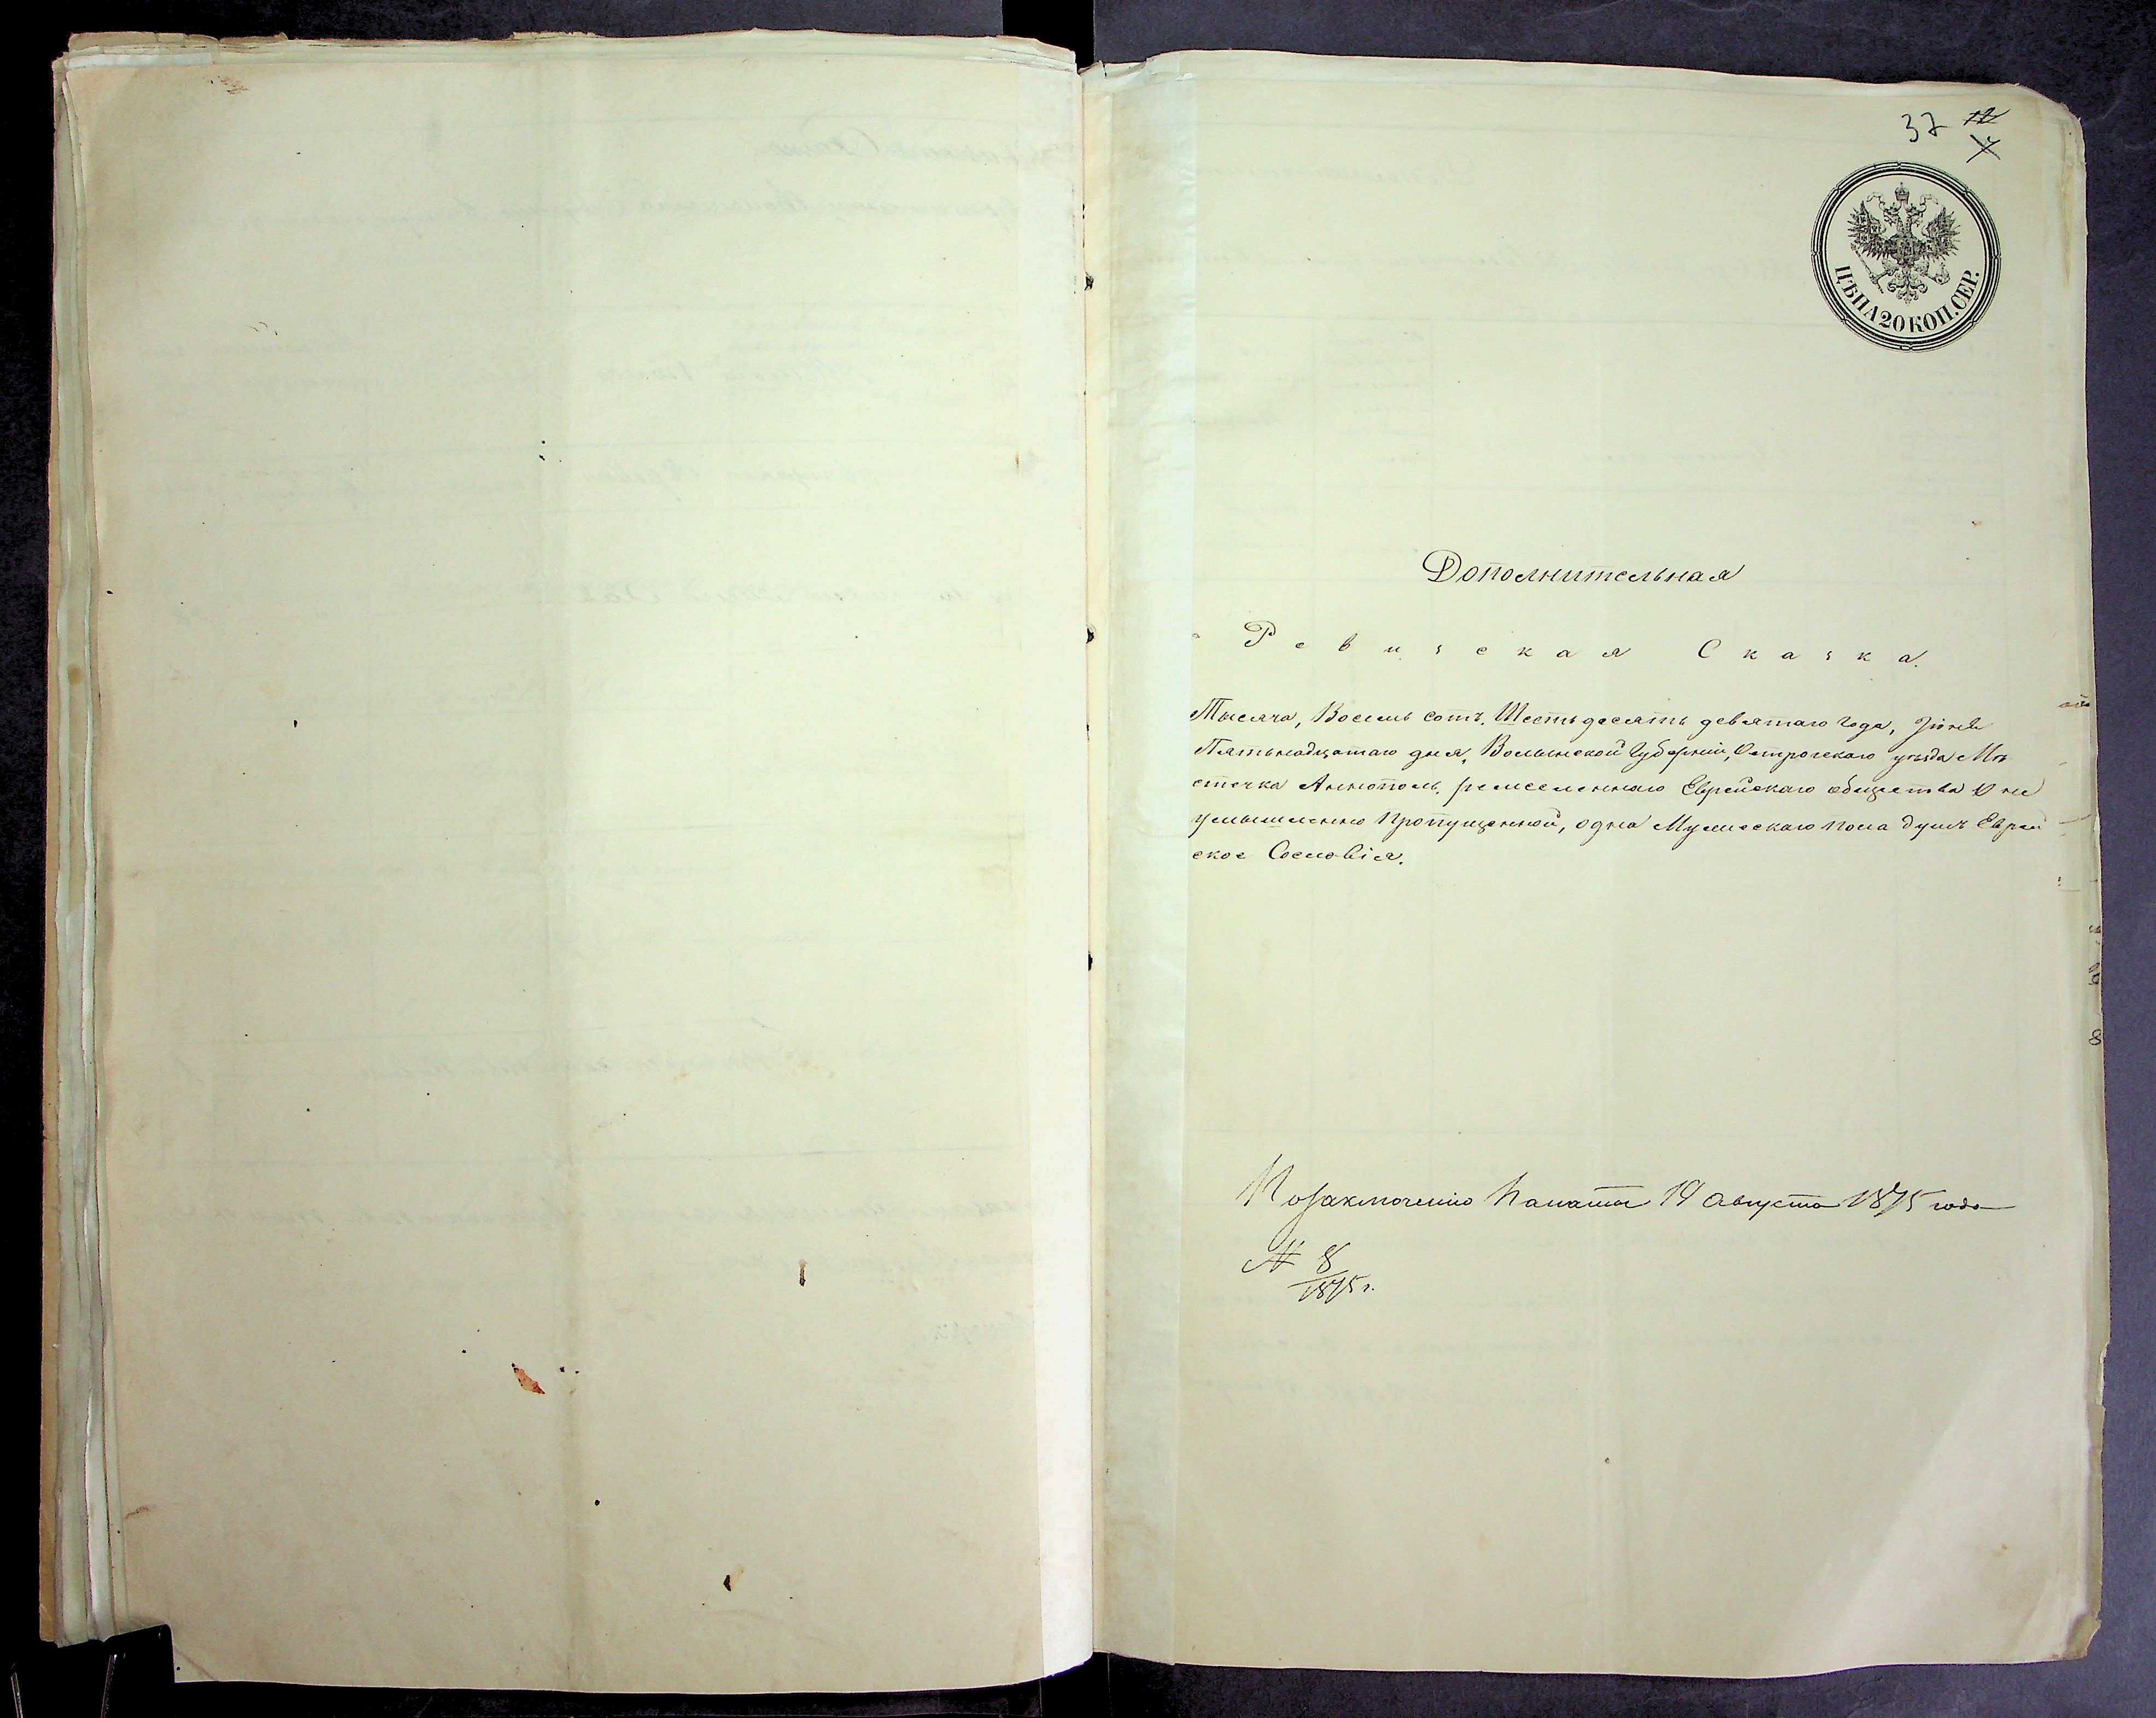 37 12
7
ЦѢНА 20 КОП. СЕР.
Дополнительная
Ревизская Сказка.
Тысяча, Восемь сотъ, Шестьдесять девятаго года, Іюня
Пятьнадцатаго дня, Волынской Губерніи, Острогскаго уѣзда Мѣ
стечка Аннополь, ремесленнаго Еврейскаго общества О не
умышленно Пропущенной, одна Мужескаго пола душъ Еврей
ское Сословія.
По заключенію Палаты 14 Августа 1875 года
№ 8
1875 г.